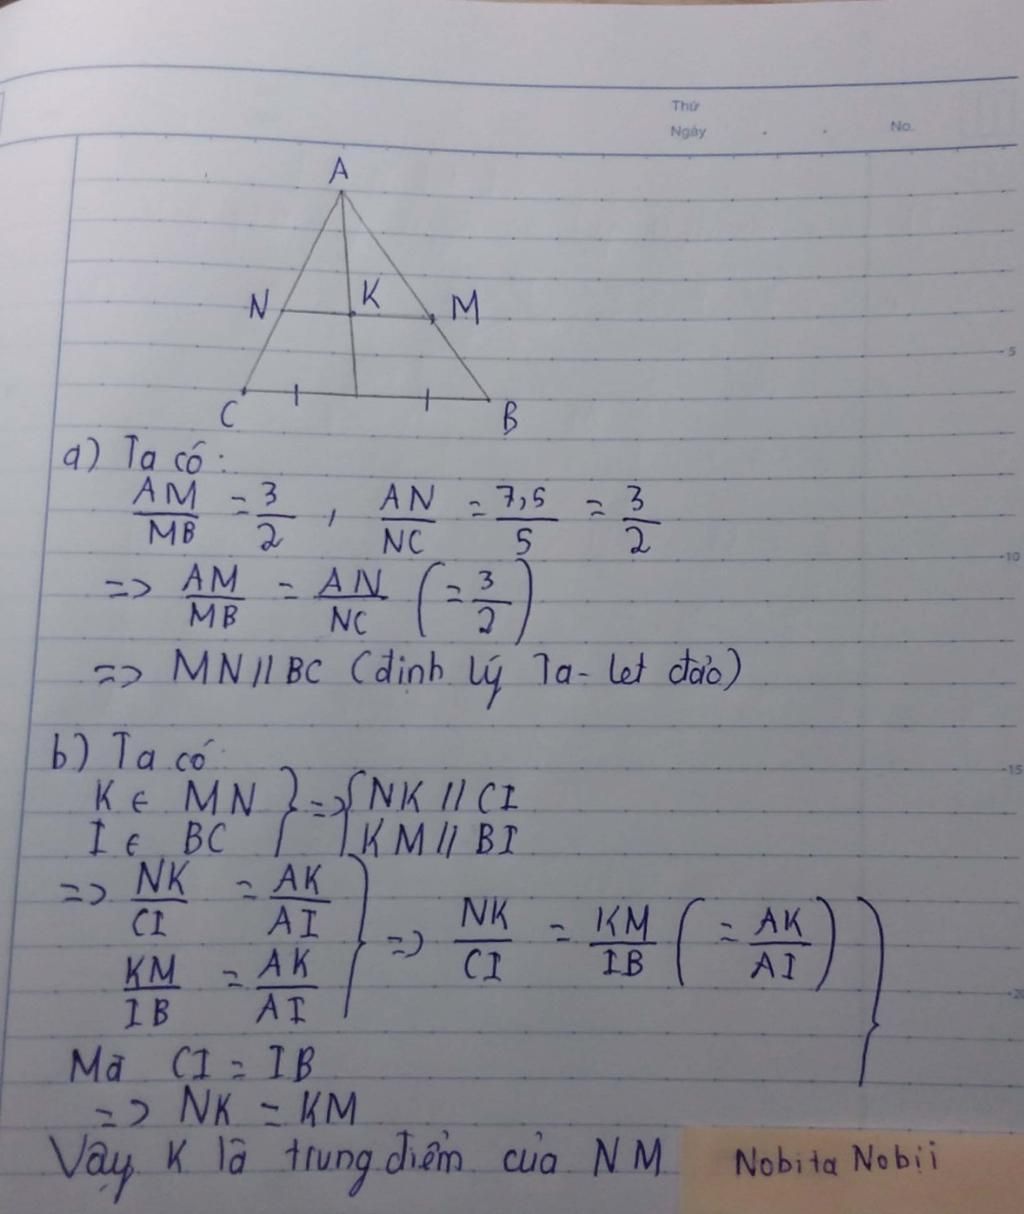 Thứ
Ngày . . No.
A
N K M
5
C B
a) Ta có:
AM/MB = 3/2 , AN/NC = 7,5/5 = 3/2
10
=> AM/MB = AN/NC (= 3/2)
=> MN // BC (định lý Ta-let đảo)
b) Ta có:
15
K ∈ MN } => { NK // CI
I ∈ BC } { KM // BI
=> NK/CI = AK/AI } => NK/CI = KM/IB (= AK/AI) }
KM/IB = AK/AI
20
Mà CI = IB
=> NK = KM
Vậy K là trung điểm của NM Nobita Nobii